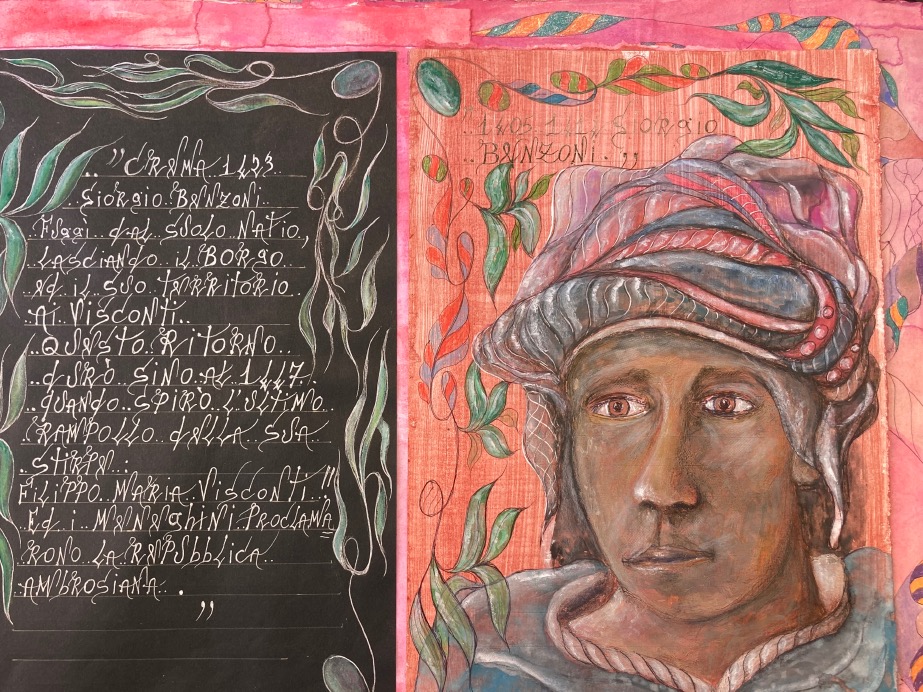 .. " CREMA 1423 ..
Giorgio BENZONI..
Fuggì dal suolo natio,
lasciando il Borgo..
ed il suo territorio
ai Visconti..
Questo ritorno..
durò sino al 1447.
quando spirò l'ultimo
rampollo della sua
stirpe:
Filippo Maria Visconti. "
Ed i Meneghini proclama
rono la repubblica
ambrosiana.
"
Giorgio
.. BENZONI. "